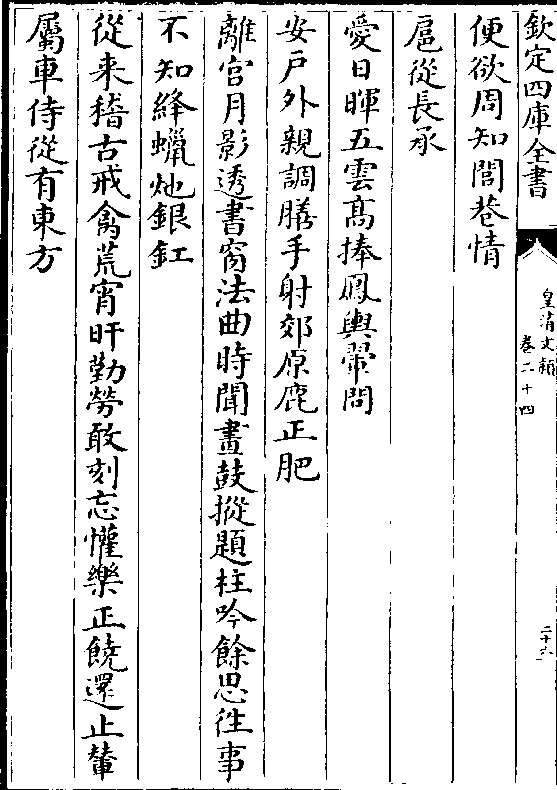 欽定四庫全書
皇清文穎
卷二十四
二十六
便欲周知閭巷情
扈從長承
愛日暉五雲高捧鳳輿翬問
安戶外親調膳手射郊原鹿正肥
離宮月影透書窗法曲時聞畫鼓摐題柱吟餘思徃事
不知絳蠟灺銀釭
從来稽古戒禽荒宵旰勤勞敢刻忘懽樂正饒還止輦
屬車侍從有東方